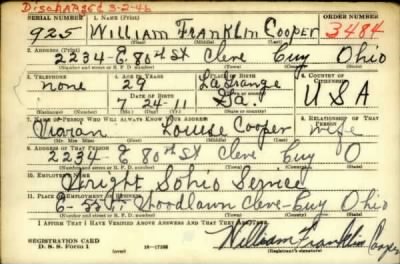 Discharged 3-2-46
SERIAL NUMBER 1. NAME (Print) ORDER NUMBER
925 William Franklin Cooper 3484
(First) (Middle) (Last)
2. ADDRESS (Print)
2234-E 80th St Cleve Cuy Ohio
(Number and street or R. F. D. number) (Town) (County) (State)
3. TELEPHONE 4. AGE IN YEARS 5. PLACE OF BIRTH 6. COUNTRY OF CITIZENSHIP
none 29 LaGrange
DATE OF BIRTH
7 24-11 Ga. USA
(Exchange) (Number) (Mo.) (Day) (Yr.) (State or country)
7. NAME OF PERSON WHO WILL ALWAYS KNOW YOUR ADDRESS 8. RELATIONSHIP OF THAT PERSON
Vivian Louise Cooper wife
(Mr. Mrs. Miss) (First) (Middle) (Last)
9. ADDRESS OF THAT PERSON
2234-E 80th St Cleve Cuy O
(Number and street or R. F. D. number) (Town) (County) (State)
10. EMPLOYER'S NAME
Wright Sohio Service
11. PLACE OF EMPLOYMENT OR BUSINESS
Woodlawn Cleve-Cuy Ohio
(Number and street or R. F. D. number) (Town) (County) (State)
I AFFIRM THAT I HAVE VERIFIED ABOVE ANSWERS AND THAT THEY ARE TRUE.
REGISTRATION CARD
D. S. S. Form 1 (over) William Franklin Cooper
(Registrant's signature)